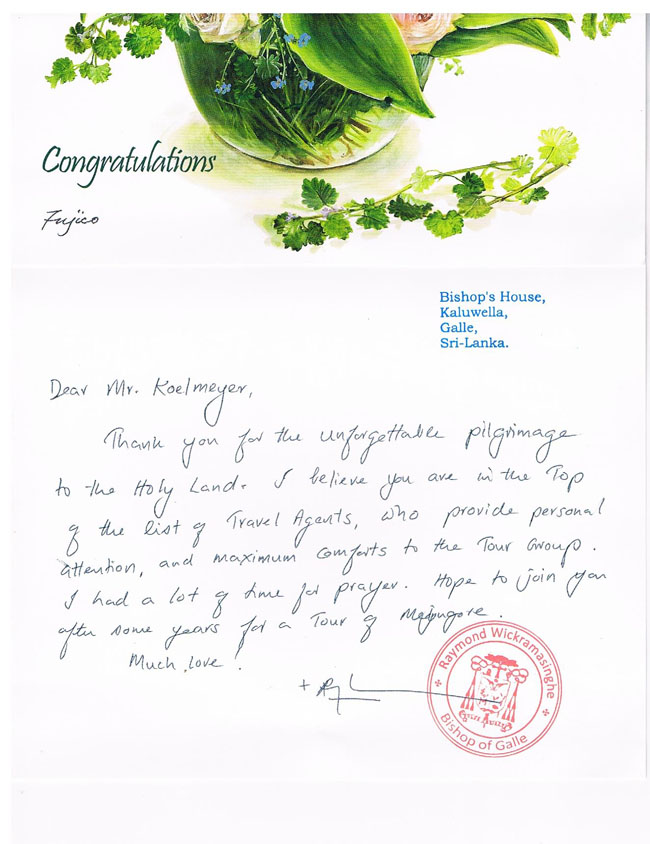 Congratulations
Fujico
Bishop's House,
Kaluwella,
Galle,
Sri-Lanka.
Dear Mr. Koelmeyer,
Thank you for the unforgettable pilgrimage
to the Holy Land. I believe you are in the Top
of the list of Travel Agents, who provide personal
attention, and maximum comforts to the Tour Group.
I had a lot of time for prayer. Hope to join you
after some years for a Tour of
Much love!
Raymond Wickramasinghe
Bishop of Galle